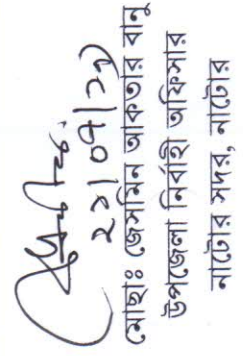 ২১/০৭/১১
মোছাঃ জেসমিন আকতার বানু
উপজেলা নির্বাহী অফিসার
নাটোর সদর, নাটোর